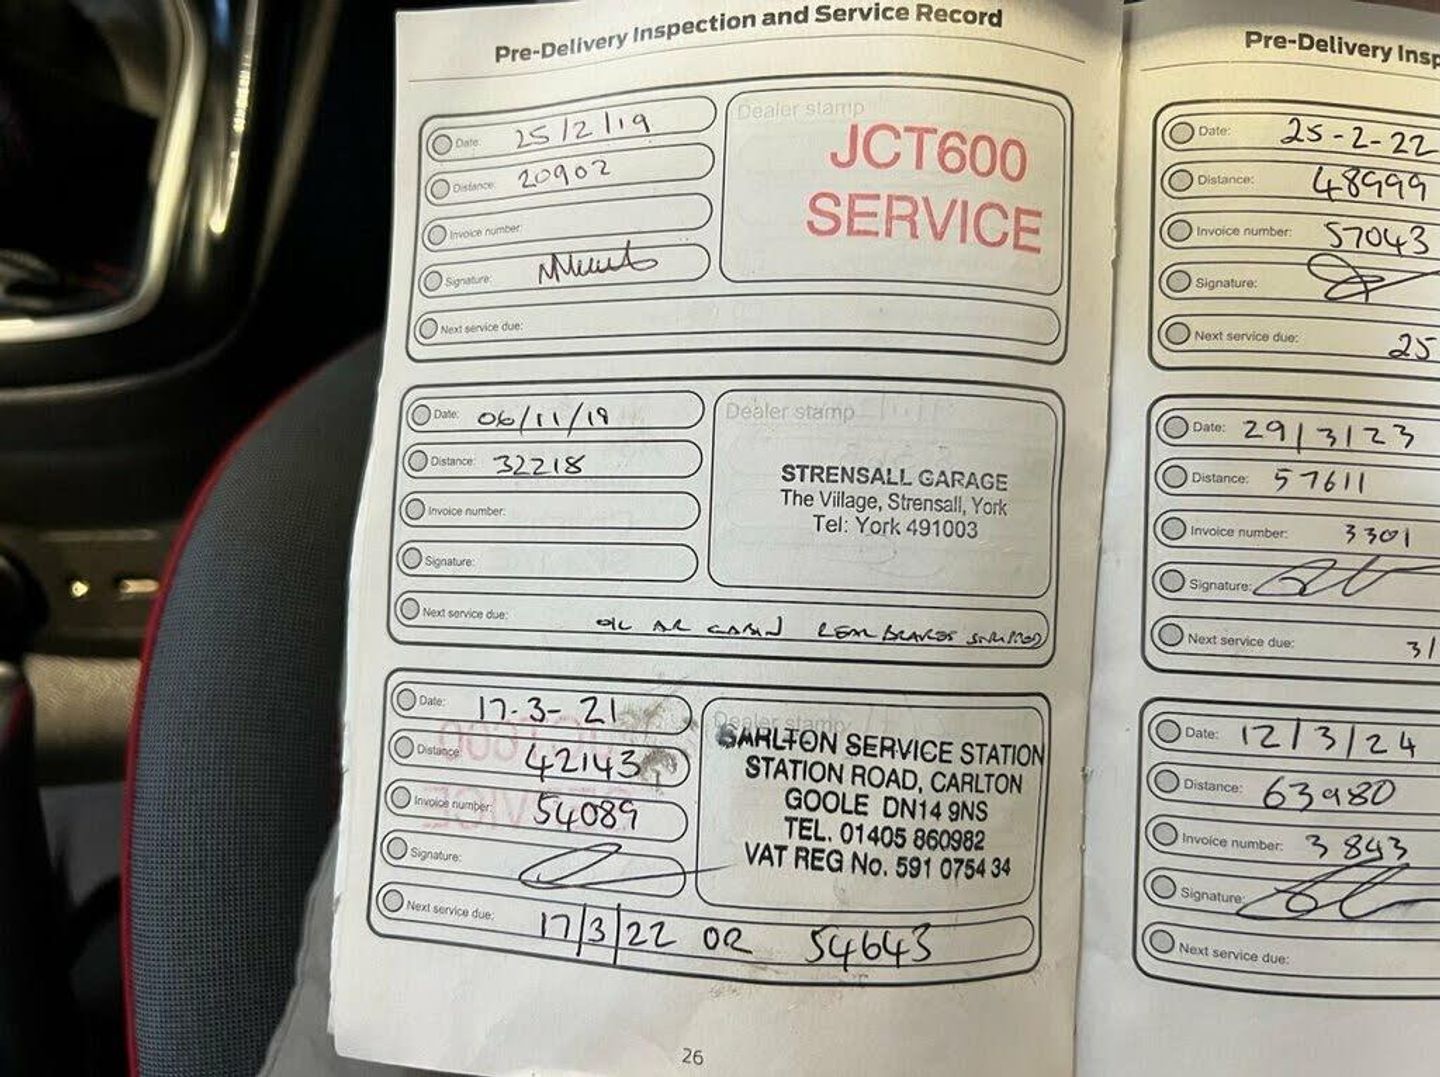 Pre-Delivery Inspection and Service Record
Date: 25/2/19
Distance: 20902
Invoice number:
Signature:
Next service due:
Dealer stamp
JCT600
SERVICE
Date: 06/11/19
Distance: 32218
Invoice number:
Signature:
Next service due: OIL AIR CABIN REAR BRAKES STRIPPED
Dealer stamp
STRENSALL GARAGE
The Village, Strensall, York
Tel: York 491003
Date: 17-3-21
Distance: 42143
Invoice number: 54089
Signature:
Next service due: 17/3/22 OR 54643
Dealer stamp
CARLTON SERVICE STATION
STATION ROAD, CARLTON
GOOLE DN14 9NS
TEL. 01405 860982
VAT REG No. 591 0754 34
26
Pre-Delivery Insp
Date: 25-2-22
Distance: 48999
Invoice number: 57043
Signature:
Next service due: 25
Date: 29/3/23
Distance: 57611
Invoice number: 3301
Signature:
Next service due: 31
Date: 12/3/24
Distance: 63980
Invoice number: 3843
Signature:
Next service due: